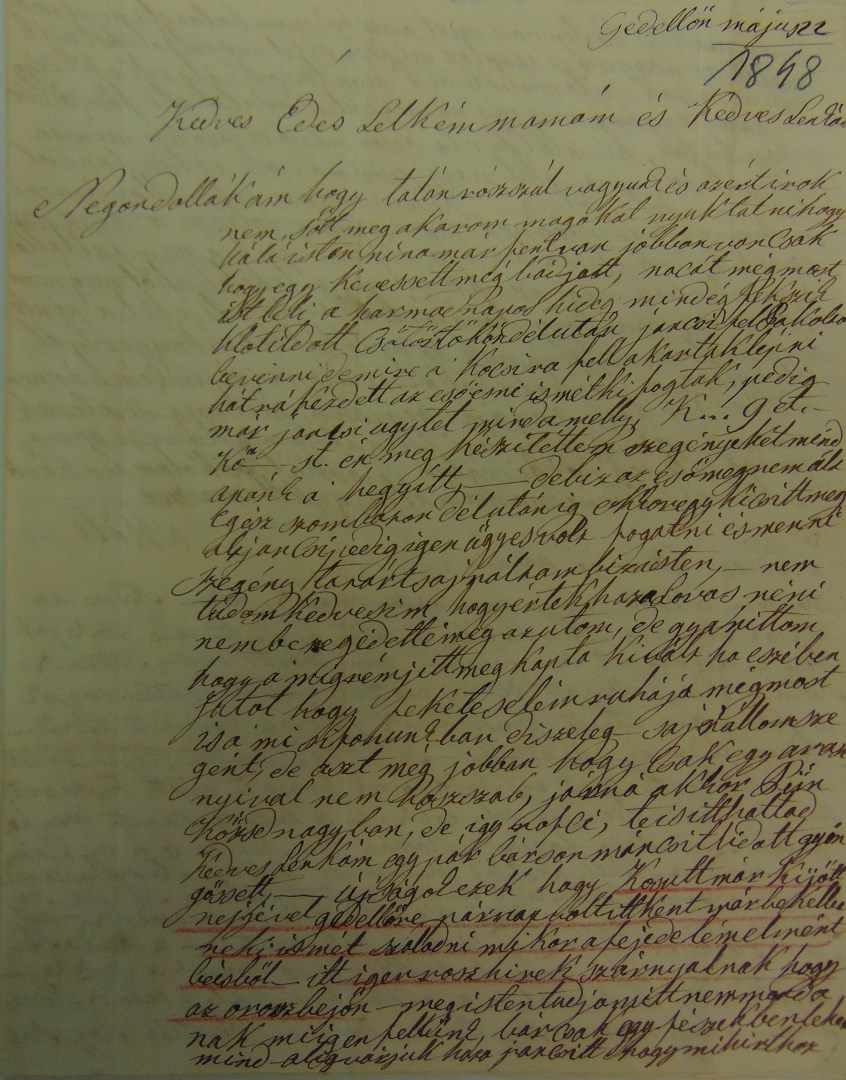 Gedellőn május 22
1848
Kedves Édes Lelkem mamám és Kedves Lenkám
Ne gondollákám hogy talán rószszúl vagyunk és azért irok
nem, sőtt meg akarom magokál nyuktatni hogy
hálá isten nina már fent van jobban van Csak
hogy egy kévessett még bádjatt, nacát mégmost
is leli a harmadnapos hideg mindég fékszik
klotildott Csötöstökön délután jancsi fel
bevinni de mire a kocsira fell akartak lépni
hát rá kézdett az esö esni ismét ki fogták, pedig
már jancsi ugylet mind amelly K... g et.-
Kő — st. én meg készitettem szegényekét mind
apánk a hegyitt, — de biz az esö meg nem ált
egész szombaton délutánig ekkor egy kicsitt meg
álj jancsi pedig igen ügyes volt fogatni és menni
szegény tatárt sajnálnam bizisten, — nem
tudom kedvesim hogy értek haza lovas néni
nem bezegédetté még az utom, de gyanittom
hogy a migrémjitt meg kapta kivált ha eszében
jutot hogy fekete selein ruhája mégmost
is a mi sifonunkban diszeleg — sajnállom sze
gent, de aszt még jobban hogy Csak egy aras
nyival nem hoszszab, járná akkor
közsd nagyban, de igy nofli, te is itthattad
Kedves lenkám egy pár bárson máncsit lidatt gyön
gössett — ujságol ezek hogy Kosutt már kijött
nejéivel gedellőre párnap volt itt ként már be kellet
neki ismét száladni mikor a fejedelem elmént
bésböl — itt igen rosz hirek szárnyalnak hogy
az orosz bejön — meg isten tudja mitt nem monda
nak mi igen fellünk, bár Csak egy fészekben lehe
mind — alig várjuk haza jancsitt hogy mi hirt hoz